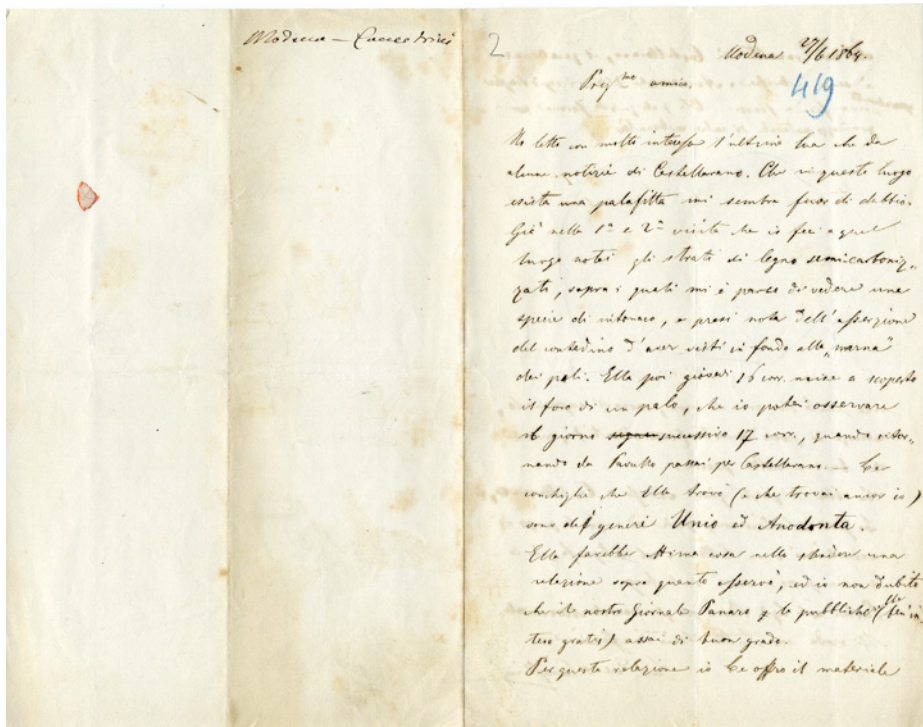 Modena — Canestrini
2
Modena 27/6 1864.
419
Preg.mo amico.
Ho letto con molto interesse l'ultima sua che da
alcune notizie di Castellarano. Che in questo luogo
esista una palafitta mi sembra fuor di dubbio.
Già nella 1a e 2a visita che io feci a quel
luogo notai gli strati di legno semicarboniz-
zati, sopra i quali mi è parso di vedere una
specie di intonaco, e presi nota dell'asserzione
del contadino d'aver visti in fondo alla "marna"
dei pali. Ella poi giovedì 16 corr. a scoperto
il foro di un palo, che io potei osservare
il giorno successivo 17 corr., quando ritor-
nando da Pavullo passai per Castellarano. — Le
conchiglie che Ella trovò (e che trovai ancor io)
sono dei generi Unio ed Anodonta.
Ella farebbe ottima cosa nello stendere una
relazione sopra quanto osservò, ed io non dubito
che il nostro Giornale Panaro la pubblichi (ben in-
teso gratis) assai di buon grado.
Per questa relazione io Le offro il materiale